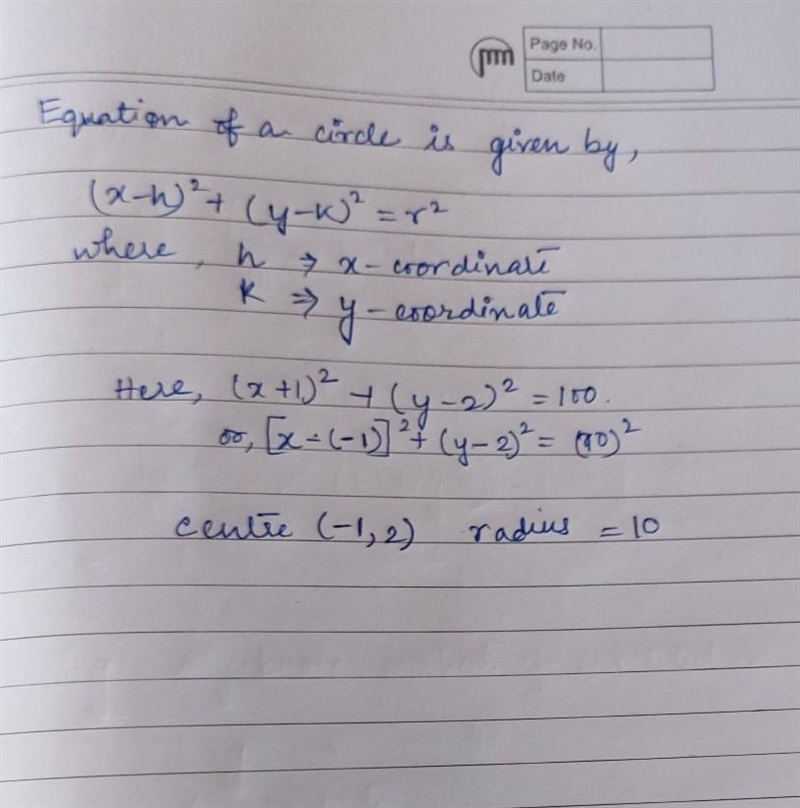 Page No.
Date
Equation of a circle is given by,
(x-h)² + (y-k)² = r²
where, h → x-coordinate
k ⇒ y-coordinate
Here, (x+1)² + (y-2)² = 100.
or, [x-(-1)]² + (y-2)² = (10)²
centre (-1, 2) radius = 10